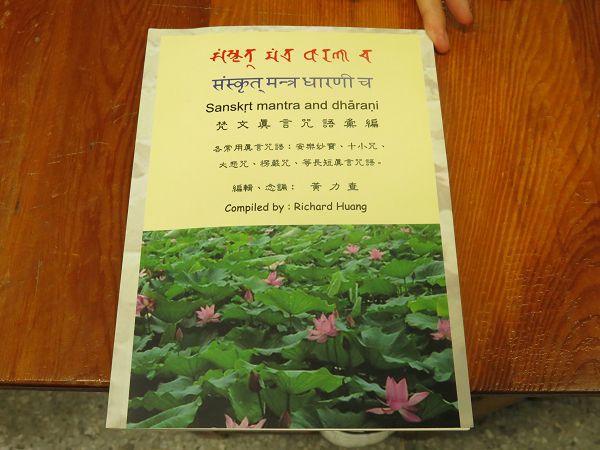 संस्कृत् मन्त्र धारणी च
Sanskṛt mantra and dhāraṇi
梵文眞言咒語彙編
各常用眞言咒語：安樂妙寶、十小咒、
大悲咒、楞嚴咒、等長短眞言咒語。
編輯、念誦： 黃力查
Compiled by : Richard Huang